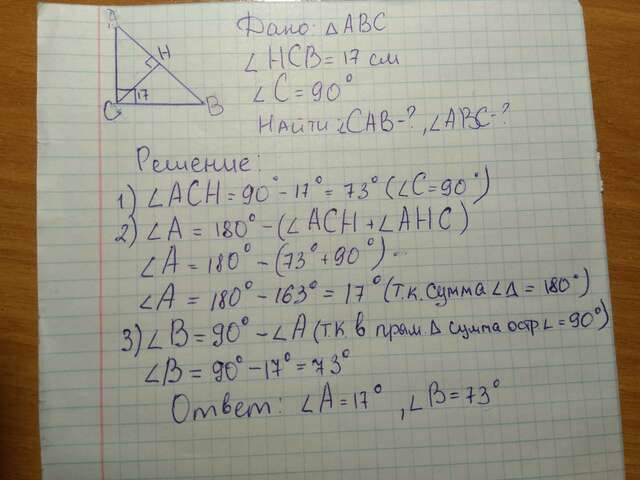 A
H
C
17
B
Дано: △ABC
∠HCB = 17 см
∠C = 90°
Найти: ∠CAB-?, ∠ABC-?
Решение:
1) ∠ACH = 90° - 17° = 73° (∠C = 90°)
2) ∠A = 180° - (∠ACH + ∠AHC)
∠A = 180° - (73° + 90°)
∠A = 180° - 163° = 17° (т.к. сумма ∠△ = 180°)
3) ∠B = 90° - ∠A (т.к. в прям. △ сумма остр ∠ = 90°)
∠B = 90° - 17° = 73°
Ответ: ∠A = 17°, ∠B = 73°